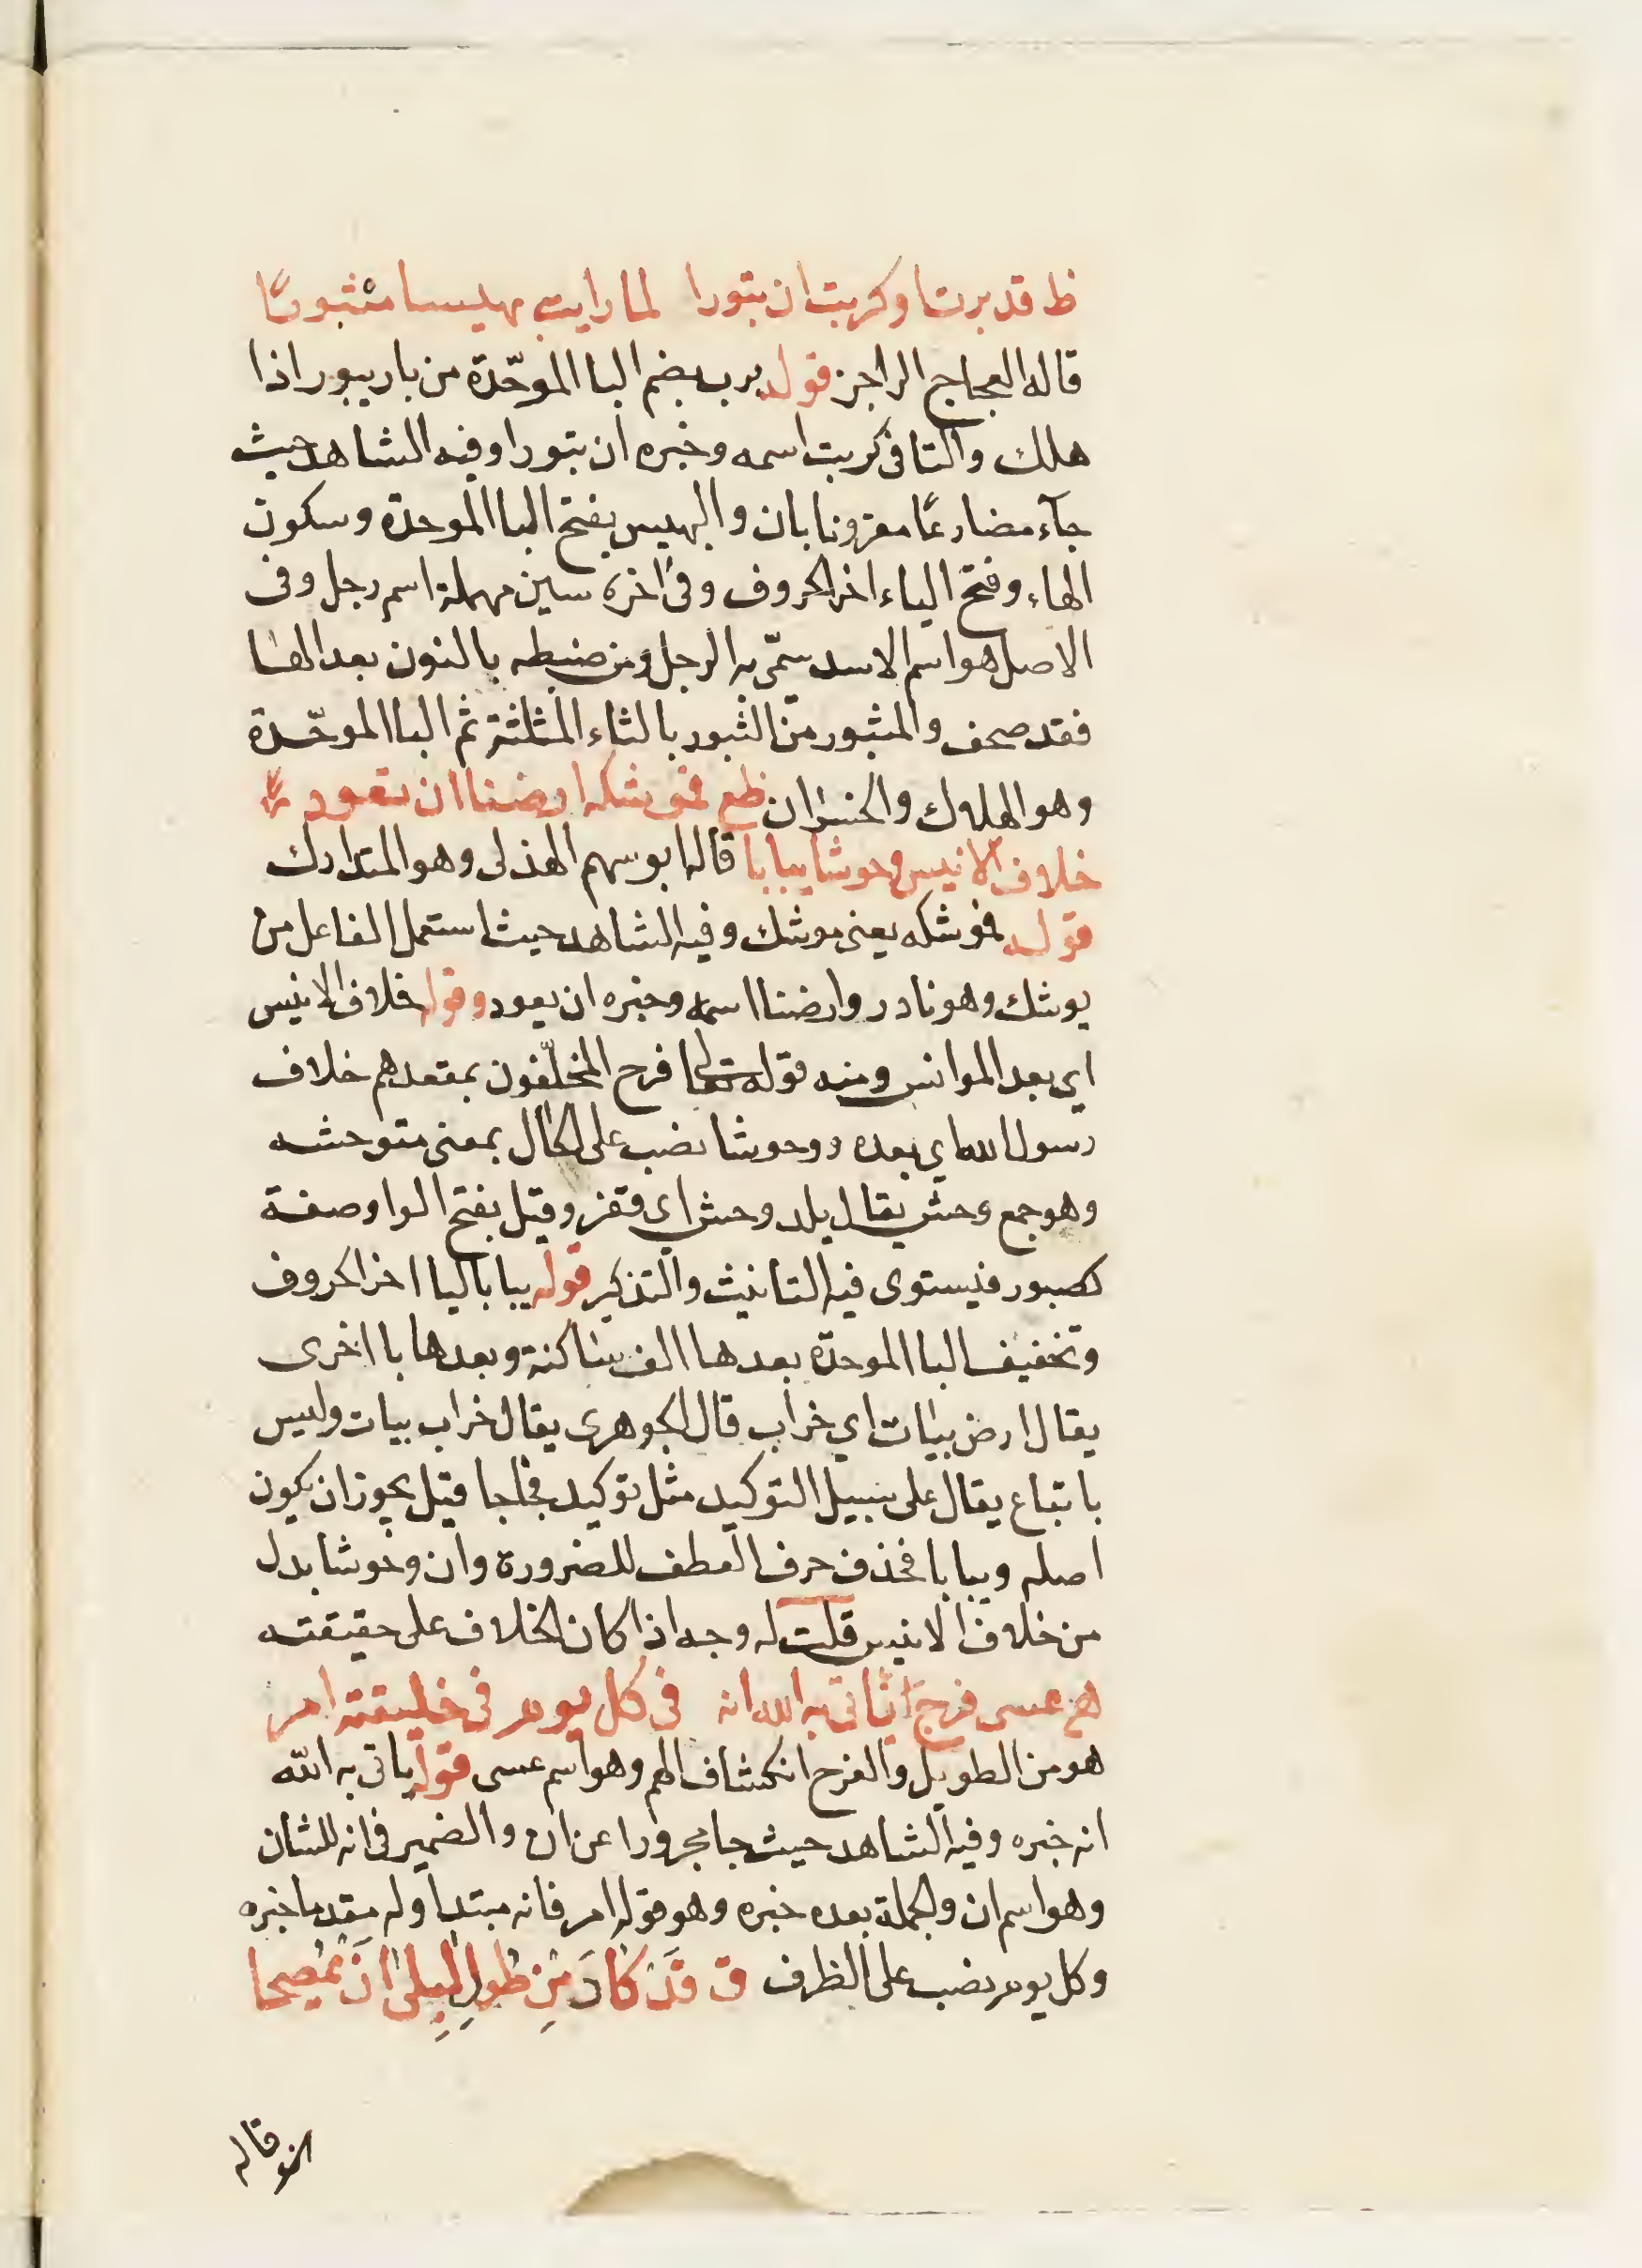 ظ قد برت او كربت ان تبورا لما رايت بهيسا مثبورًا
قاله العجاج الراجز قوله برت بضم البا الموحّدة من بار يبور اذا
هلك والتا فى كربت اسمه وخبره ان تبورا وفيه الشاهد حيث
جآء مضارعًا مقرونا بان والبهيس بفتح البا الموحدة وسكون
الهاء وفتح الياء اخر الحروف وفى اخره سين مهملة اسم رجل وفى
الاصل هو اسم الاسد سمّى به الرجل ومن ضبطه بالنون بعد الها
فقد صحف والمثبور من الثبور بالثاء المثلثة ثم البا الموحّدة
وهو الهلاك والخسران ظع فموشكة ارضنا ان تعود
خلاف الانيس وحوشا يبابا قاله ابو سهم الهذلى وهو المتدارك
قوله فموشكه يعنى موشك وفيه الشاهد حيث استعمل الفاعل من
يوشك وهو نادر وارضنا اسمه وخبره ان يعود وقوله خلاف الانيس
اي بعد الموانس ومنه قوله تعالى فرح المخلّفون بمقعدهم خلاف
رسول الله اي بعده ووحوشا نصب على الحال بمعنى متوحشه
وهو جمع وحش يقال بلد وحش اى قفر وقيل بفتح الواو صفة
كصبور فيستوى فيه التانيث والتذكير قوله يبابا باليا اخر الحروف
وتخفيف البا الموحدة بعدها الف ساكنة وبعدها با اخرى
يقال ارض بيات اي خراب قال الجوهرى يقال خراب بيات وليس
باتباع يقال على سبيل التوكيد مثل توكيد فجاجا قيل يجوز ان يكون
اصله ويبابا فحذف حرف العطف للضرورة وان وحوشا بدل
من خلاف الانيس قلت له وجه اذا كان الخلاف على حقيقته
هع عسى فرج ياتى به الله انه فى كل يوم فى خليقته امر
هو من الطويل والفرج انكشاف الهم وهو اسم عسى قوله ياتى به الله
انه خبره وفيه الشاهد حيث جا مجرورا عن ان والضمير فى انه للشان
وهو اسم ان والجملة بعده خبره وهو قوله امر فانه مبتدا وله مقدما خبره
وكل يوم نصب على الظرف ق قَدْ كادَ مِن طُولِ البِلى اَن يَمْصَحا
قاله